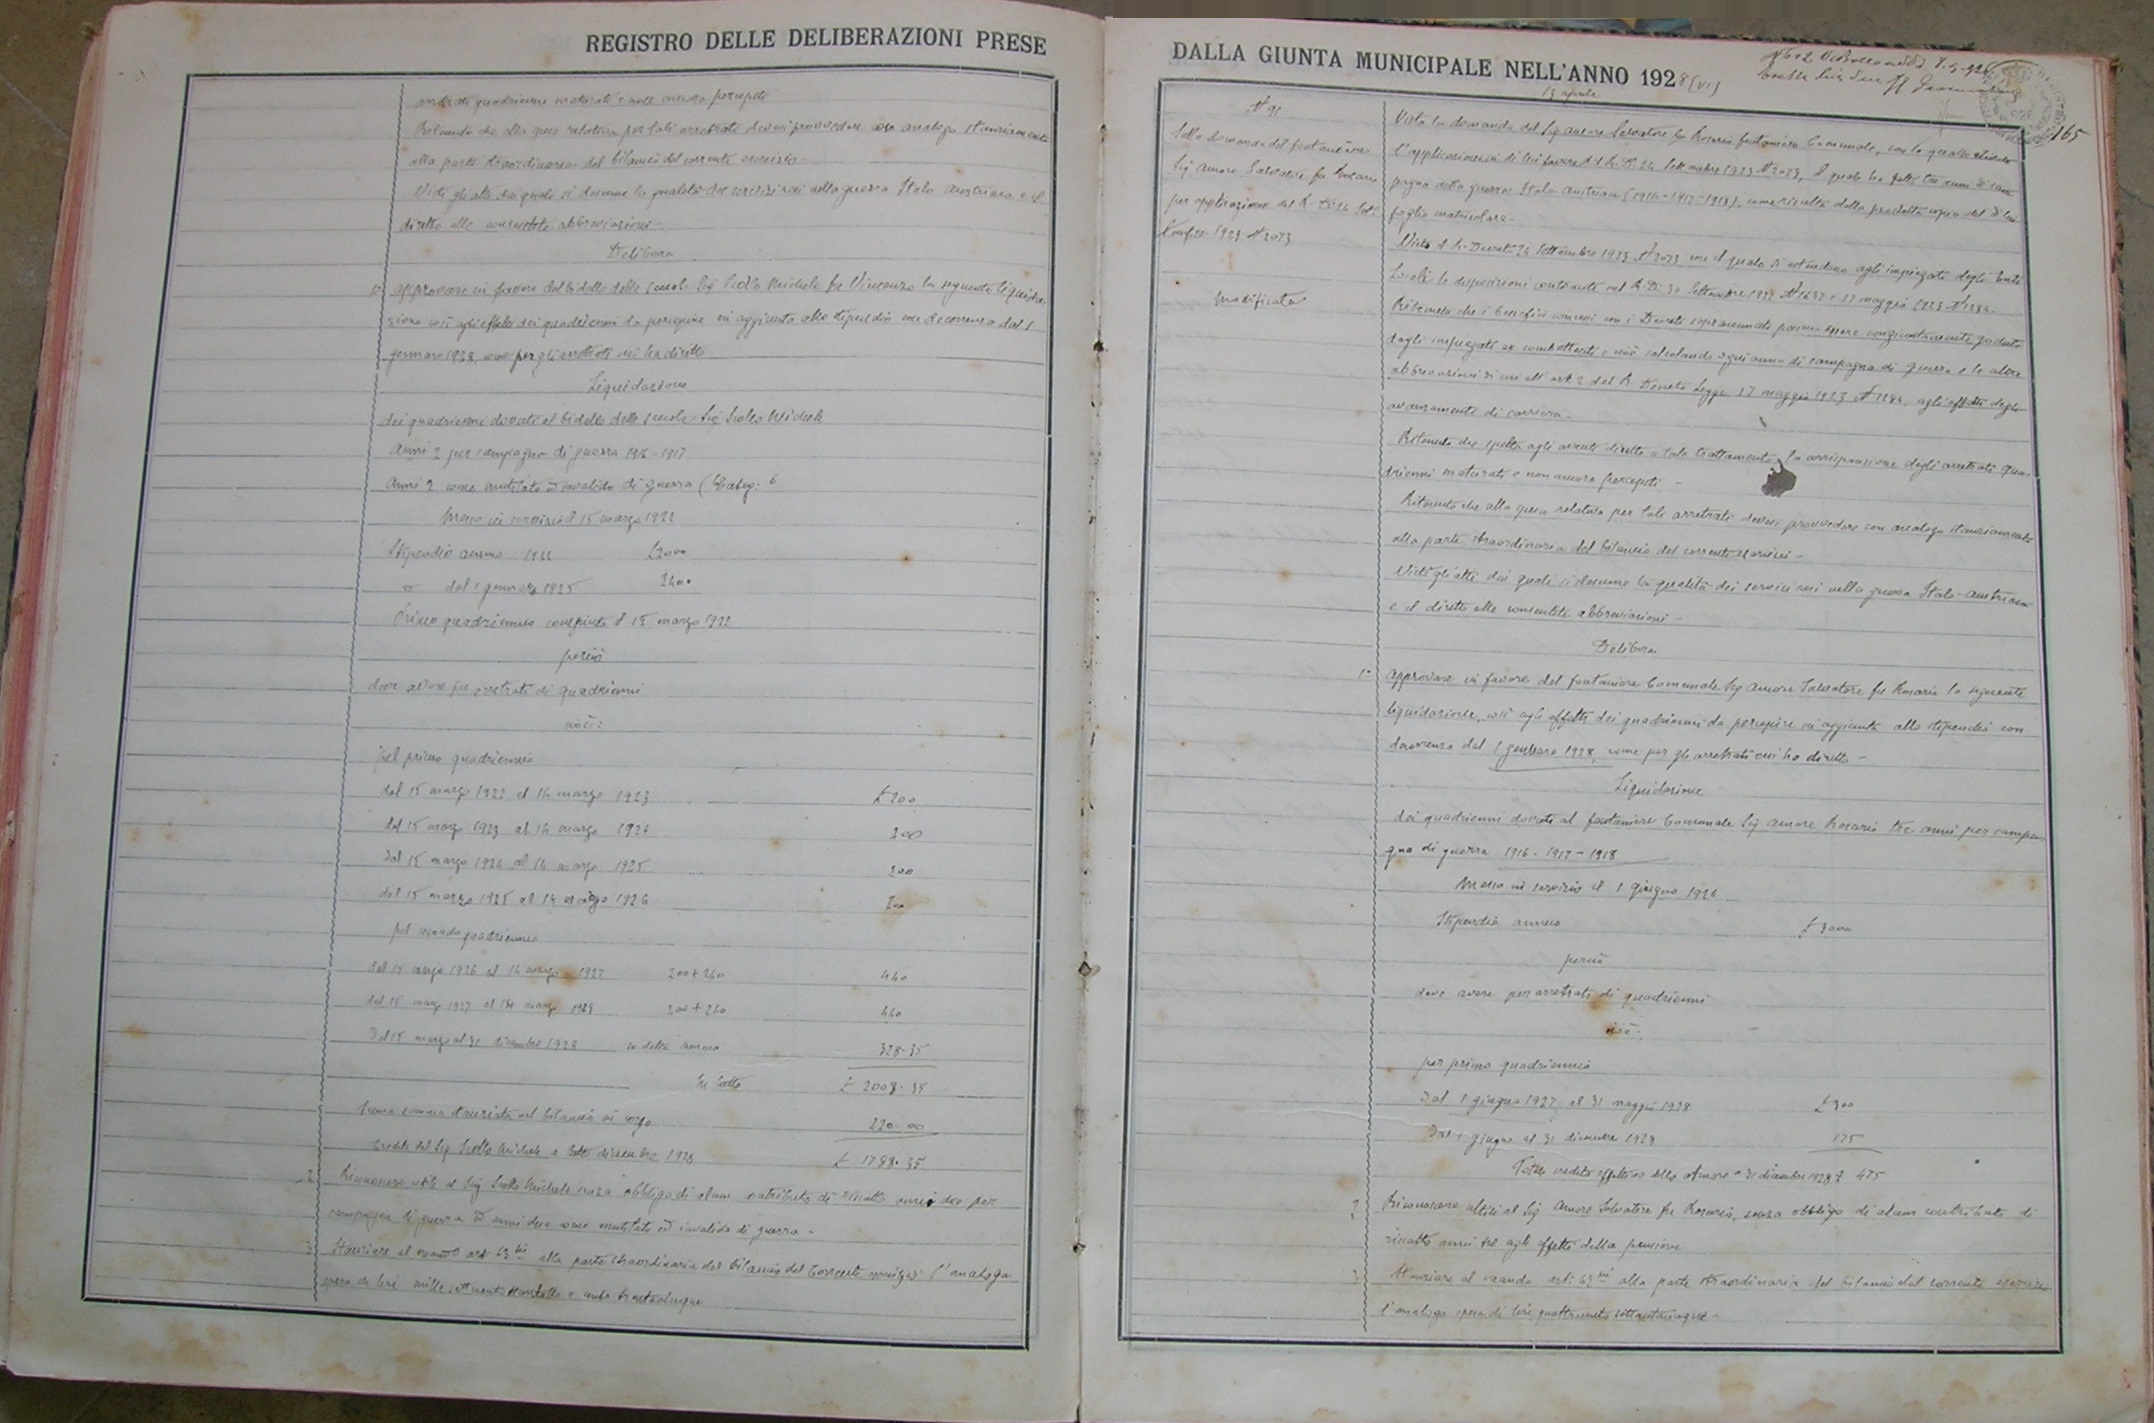 REGISTRO DELLE DELIBERAZIONI PRESE
quadrienni maturati e non ancora percepiti
Ritenuto che alla spesa relativa per tali arretrati devesi provvedere con analogo stanziamento
alla parte straordinaria del bilancio del corrente esercizio -
Visti gli atti dai quali si desume la qualità dei servizi resi nella guerra Italo Austriaca e il
diritto alle consentite abbreviazioni -
Delibera
1° approvare in favore del bidello delle scuole Sig Michele fu Vincenzo la seguente liquida-
zione così agli effetti dei quadrienni da percepire in aggiunta allo stipendio con decorrenza dal 1
gennaro 1928, come per gli arretrati cui ha diritto
Liquidazione
dei quadrienni dovuti al bidello delle scuole Sig Michele
Anni 2 per campagna di guerra 1916-1917
Anni 2 come mutilato ed invalido di guerra (Categ: 6
Messo in servizio il 15 marzo 1922
Stipendio annuo 1922 £ 2000
dal 1 gennaro 1925 2400
Primo quadriennio compiuto il 15 marzo 1922
perciò
deve avere per arretrati di quadrienni
cioè:
pel primo quadriennio
dal 15 marzo 1922 al 14 marzo 1923 £ 200
dal 15 marzo 1923 al 14 marzo 1924 200
Dal 15 marzo 1924 al 14 marzo 1925 200
dal 15 marzo 1925 al 14 marzo 1926 200
pel secondo quadriennio
dal 15 marzo 1926 al 14 marzo 1927 200+240 440
dal 15 marzo 1927 al 14 marzo 1928 200+240 440
Dal 15 marzo al 31 dicembre 1928 328.35
In tutto £ 2008.35
somma nel bilancio in corso 220.00
Credito del Sig Michele a tutto dicembre 1928 £ 1788.35
2 Riconoscere utili al Sig Michele senza obbligo di alcun contributo di riscatto anni due per
campagna di guerra ed anni due come mutilato ed invalido di guerra -
3 Stanziare al art: 63 bis alla parte straordinaria del bilancio del corrente esercizio l'analoga
spesa di lire mille settecentottantotto e cent. trentacinque
DALLA GIUNTA MUNICIPALE NELL'ANNO 1928 (VI)
13 aprile
165
N 91
Sulla domanda del fontaniere
Sig Amore Salvatore fu Rosario
per applicazione del R. D. 24 Set-
tembre 1923 N 2073
Modificata
Vista la domanda del Sig Amore Salvatore fu Rosario fontaniere Comunale, con la quale chiede
l'applicazione in di lui favore del R. D. 24 Settembre 1923 N 2073, il quale ha fatto tre anni di cam-
pagna della guerra Italo Austriaca (1916-1917-1918), come risulta dalla prodotta copia del di lui
foglio matricolare -
Visto il R. Decreto 24 Settembre 1923 N 2073 con il quale si estendono agli impiegati degli Enti
Locali le disposizioni contenute nel R. D. 30 Settembre 1922 N 1637 e 17 maggio 1923 N 1284 -
Ritenuto che i benefici concessi con i Decreti sopracennati possono essere congiuntamente goduti
dagli impiegati ex combattenti e cioè calcolando ogni anno di campagna di guerra e le altre
abbreviazioni di cui all'art 2 del R. Decreto Legge 17 maggio 1923 N 1284, agli effetti degli
avanzamenti di carriera -
Ritenuto che spetta agli aventi diritto a tale trattamento, la corrisponsione degli arretrati qua-
drienni maturati e non ancora percepiti -
Ritenuto che alla spesa relativa per tali arretrati devesi provvedere con analogo stanziamento
alla parte straordinaria del bilancio del corrente esercizio -
Visti gli atti dai quali si desume la qualità dei servizi resi nella guerra Italo-Austriaca
e il diritto alle consentite abbreviazioni -
Delibera
1° approvare in favore del fontaniere Comunale Sig Amore Salvatore fu Rosario la seguente
liquidazione, così agli effetti dei quadrienni da percepire in aggiunta allo stipendio con
decorrenza dal 1 gennaro 1928, come per gli arretrati cui ha diritto -
Liquidazione
dei quadrienni dovuti al fontaniere Comunale Sig Amore Rosario tre anni per campa-
gna di guerra 1916-1917-1918
Messo in servizio il 1 giugno 1926
Stipendio annuo £ 3000
perciò
deve avere per arretrati di quadrienni
cioè:
per primo quadriennio
Dal 1 giugno 1927 al 31 maggio 1928 £ 300
Dal 1 giugno al 31 dicembre 1928 175
Totale credito effettivo dello Amore a 31 dicembre 1928 £ 475
2 Riconoscere utili al Sig Amore Salvatore fu Rosario, senza obbligo di alcun contributo di
riscatto anni tre agli effetti della pensione
3 Stanziare al art: 63 bis alla parte straordinaria del bilancio del corrente esercizio
l'analoga spesa di lire quattrocento settantacinque -